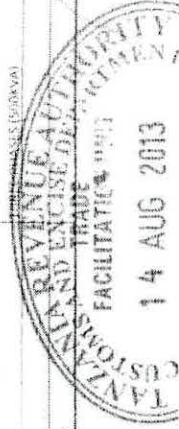 TANZANIA REVENUE AUTHORITY
CUSTOMS AND EXCISE DEPARTMEN
TRADE
FACILITATION UNIT
14 AUG 2013
(500KVA)